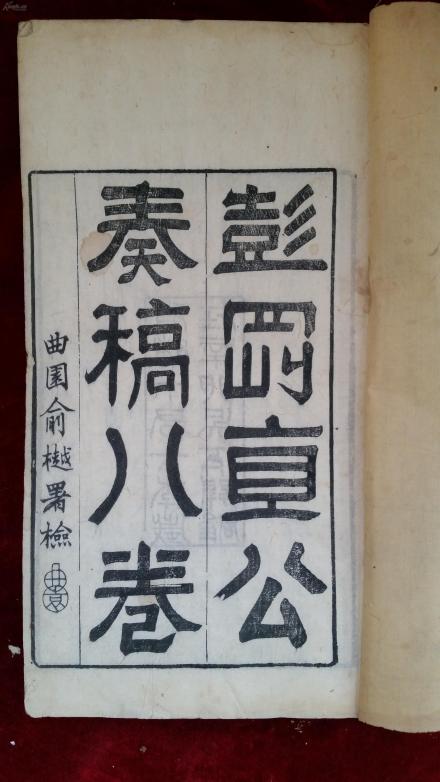 彭剛直公
奏稿八卷
曲園俞樾署檢